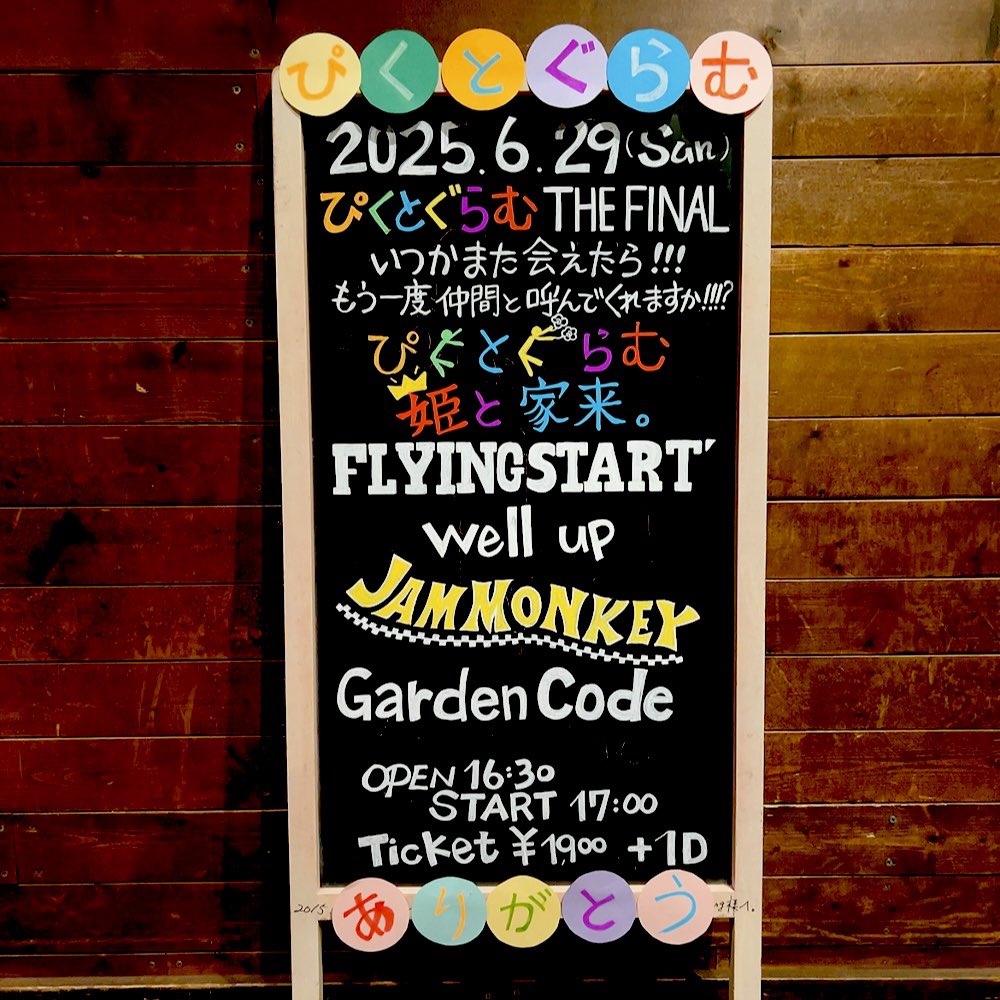 ぴくとぐらむ
2025.6.29(Sun)
ぴくとぐらむ THE FINAL
いつかまた会えたら!!!
もう一度 仲間と呼んでくれますか!!!?
ぴくとぐらむ
姫と家来。
FLYING START'
well up
JAMMONKEY
Garden Code
OPEN 16:30
START 17:00
Ticket ¥1900 +1D
ありがとう
2015